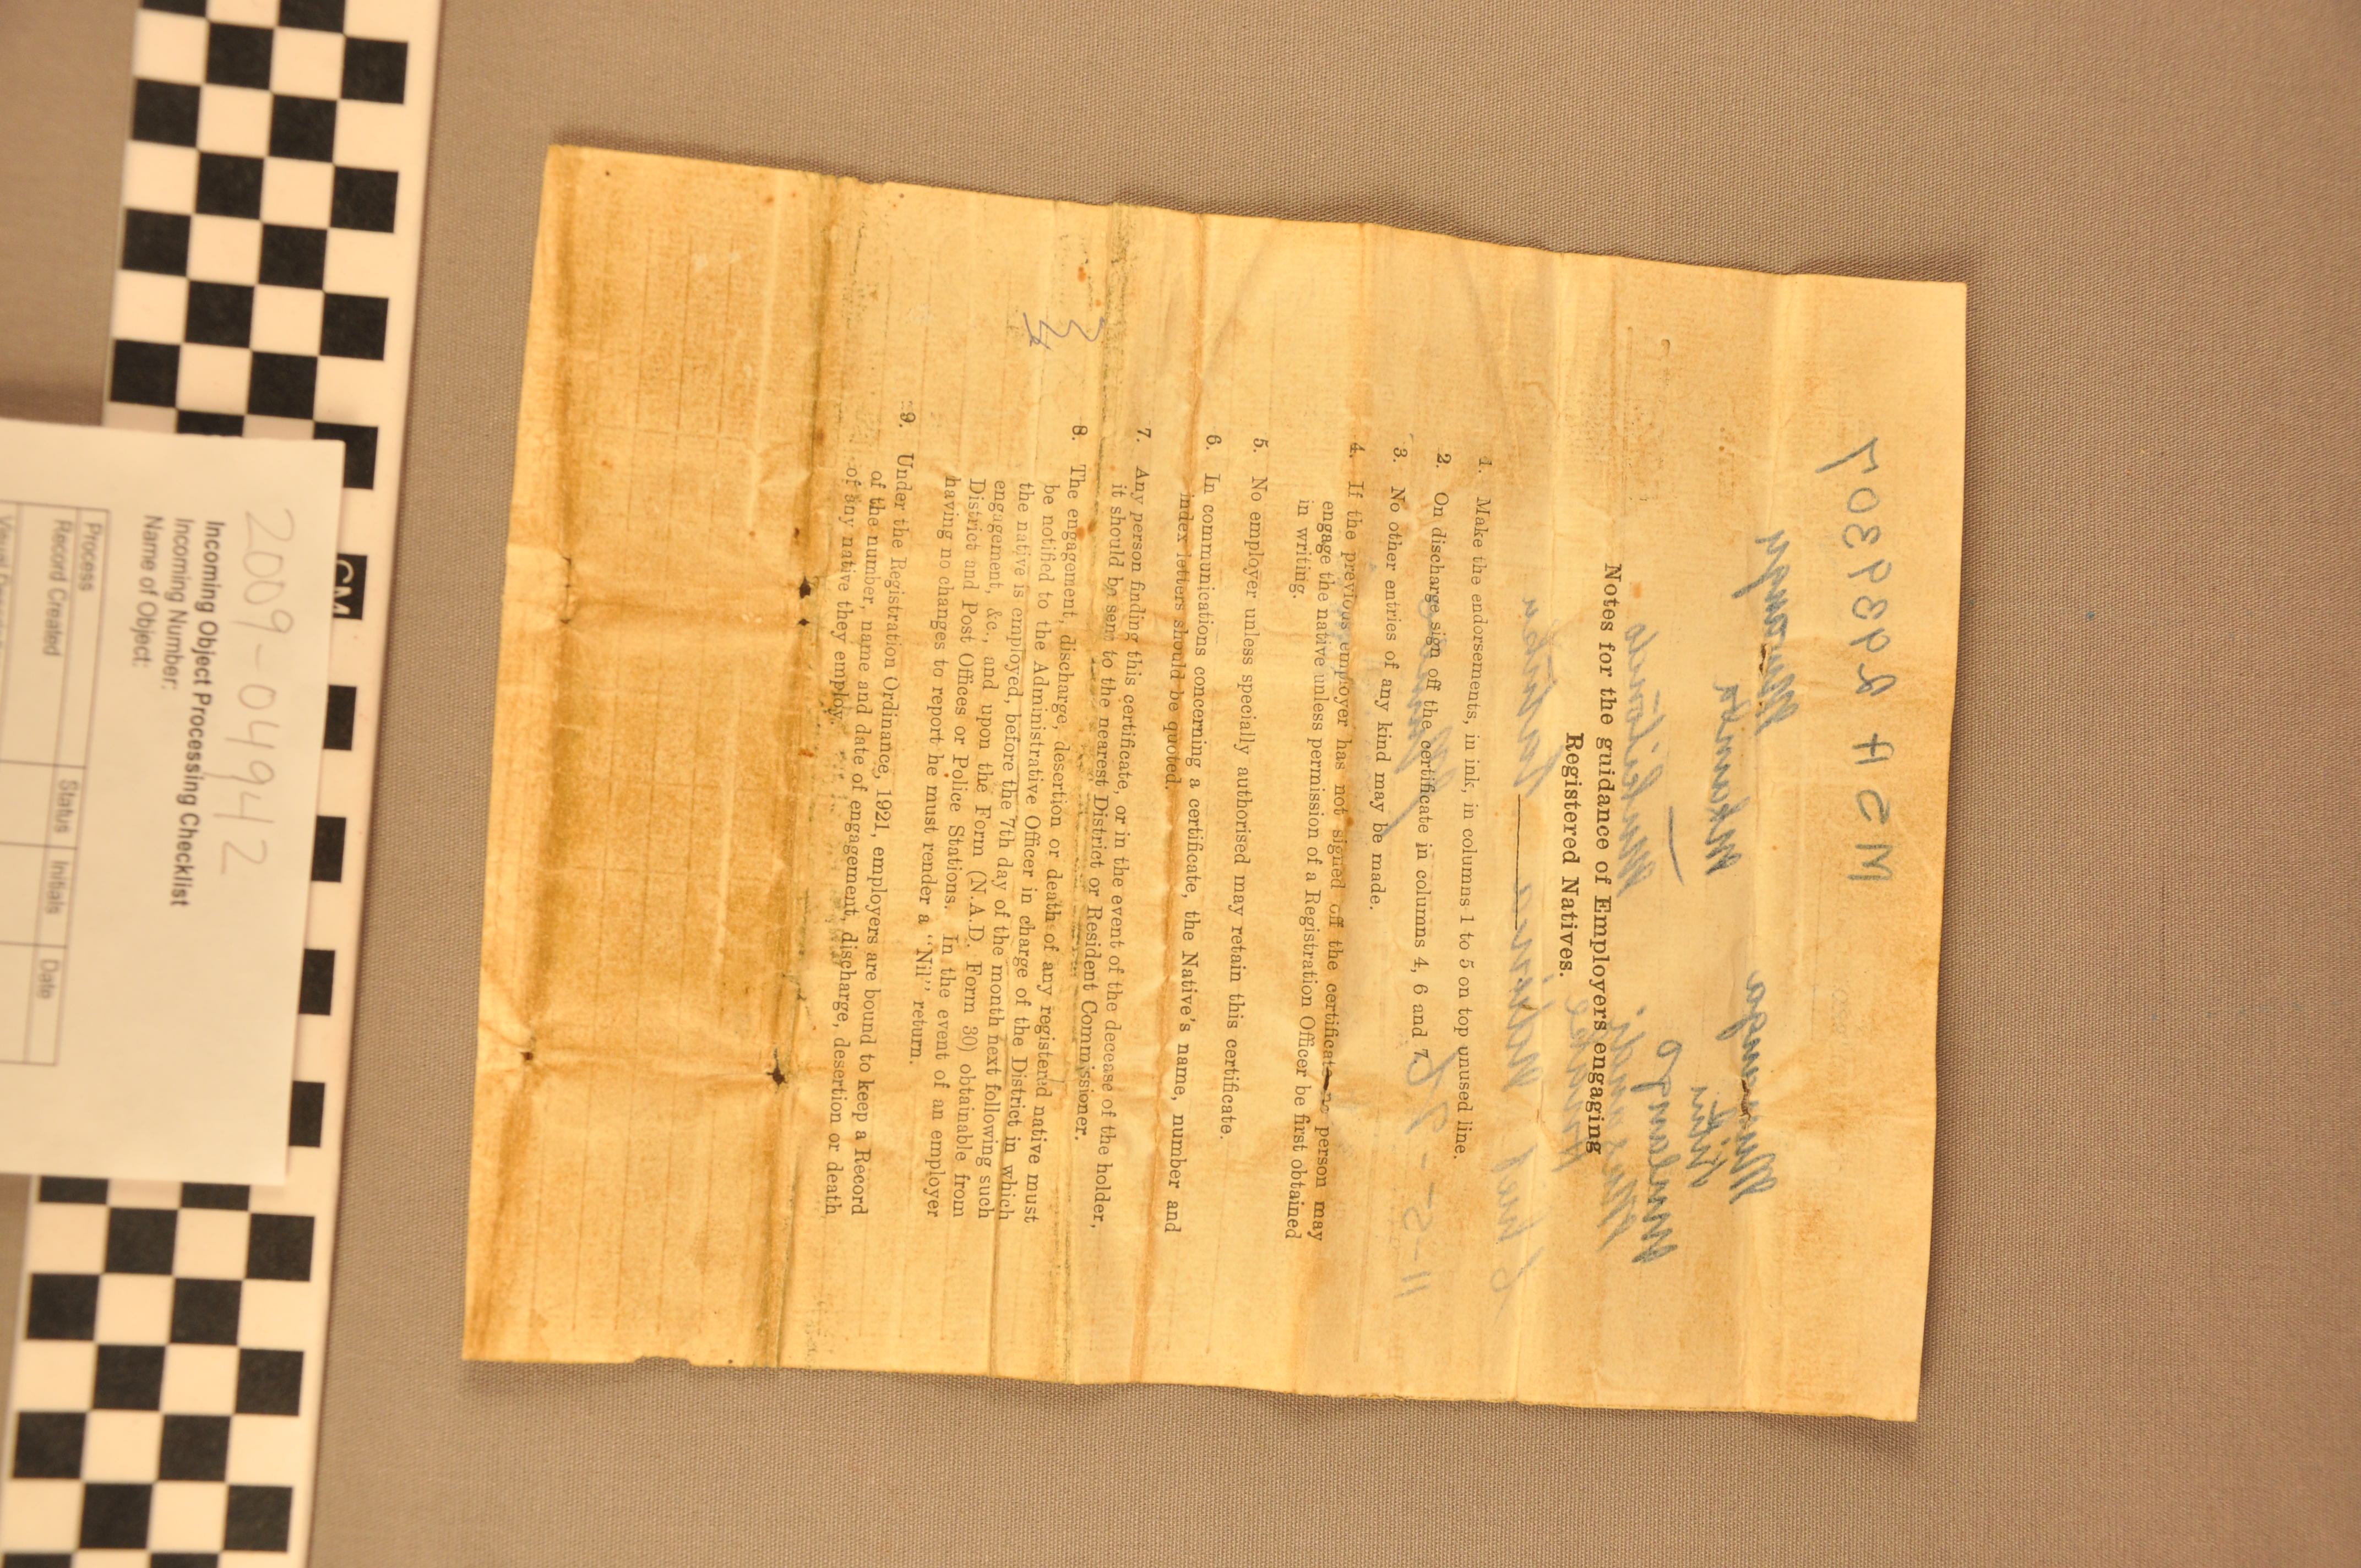 Notes for the guidance of Employers engaging
Registered Natives.
1. Make the endorsements, in ink, in columns 1 to 5 on top unused line.
2. On discharge sign off the certificate in columns 4, 6 and 7.
3. No other entries of any kind may be made.
4. If the previous employer has not signed off the certificate no person may
engage the native unless permission of a Registration Officer be first obtained
in writing.
5. No employer unless specially authorised may retain this certificate.
6. In communications concerning a certificate, the Native's name, number and
index letters should be quoted.
7. Any person finding this certificate, or in the event of the decease of the holder,
it should be sent to the nearest District or Resident Commissioner.
8. The engagement, discharge, desertion or death of any registered native must
be notified to the Administrative Officer in charge of the District in which
the native is employed, before the 7th day of the month next following such
engagement, &c., and upon the Form (N.A.D. Form 30) obtainable from
District and Post Offices or Police Stations. In the event of an employer
having no changes to report he must render a "Nil" return.
9. Under the Registration Ordinance, 1921, employers are bound to keep a Record
of the number, name and date of engagement, discharge, desertion or death
of any native they employ.
CM
2009-04942
Incoming Object Processing Checklist
Incoming Number:
Name of Object:
Process Status Initials Date
Record Created